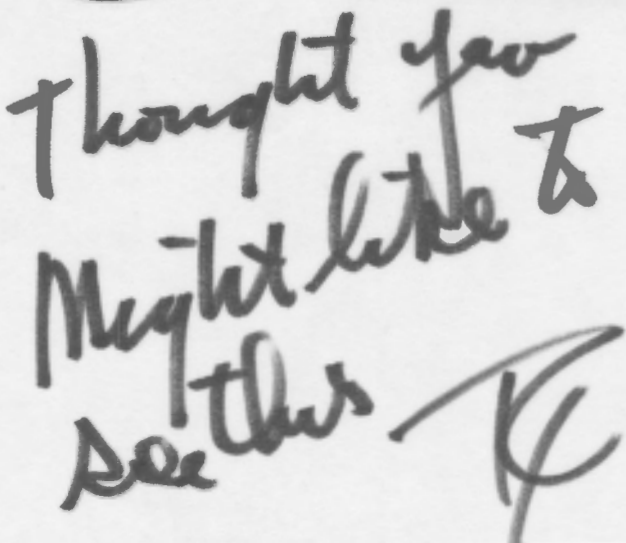 Thought you
Might like to
see this